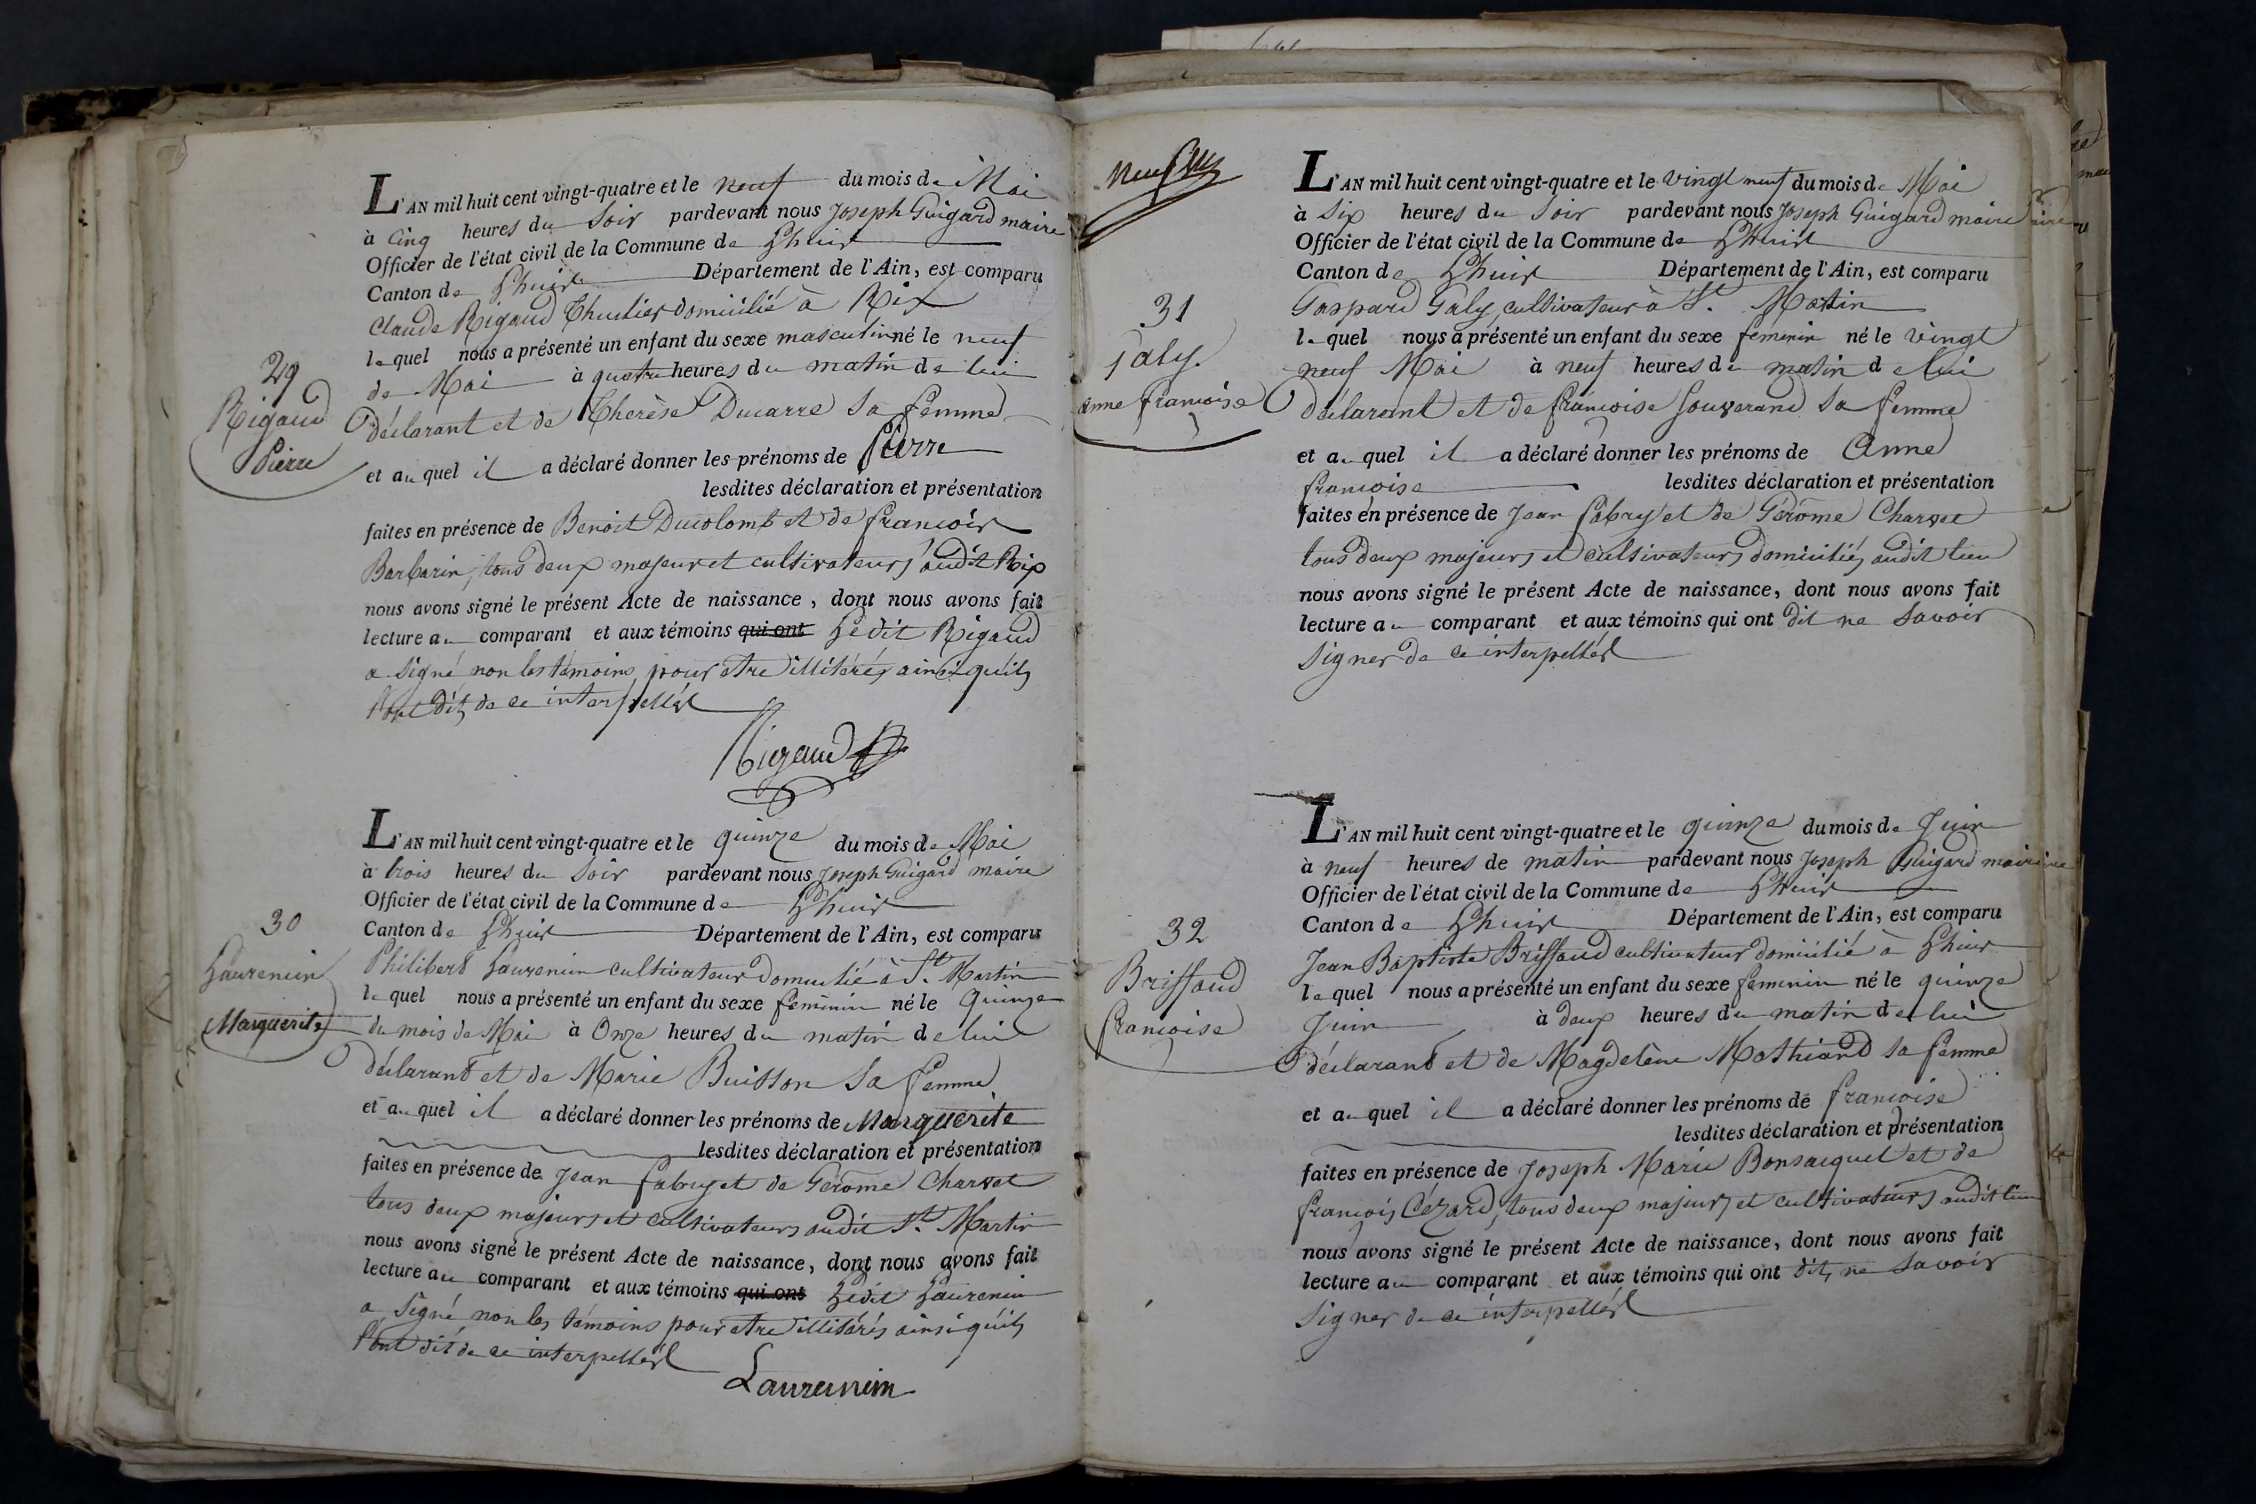 29
Rigaud
Pierre
L'AN mil huit cent vingt-quatre et le neuf du mois de Mai
à Cinq heures du Soir pardevant nous Joseph Guigard maire
Officier de l'état civil de la Commune de Lhuis
Canton de Lhuis Département de l'Ain, est comparu
Claude Rigaud domicilié à Rix
lequel nous a présenté un enfant du sexe masculin né le neuf
de Mai à quatre heures du matin de lui
déclarant et de Therèse Ducarre Sa femme
et auquel il a déclaré donner les prénoms de Pierre
lesdites déclaration et présentation
faites en présence de Benoit Ducolomb et de francois
Barbarin, tous deux majeurs et cultivateurs audit Rix
nous avons signé le présent Acte de naissance, dont nous avons fait
lecture au comparant et aux témoins qui ont Ledit Rigaud
a Signé non les témoins pour etre illitérés ainsi qu'ils
l'ont dit, de ce interpellés
Rigaud
30
Laurenin
Marguerite
L'AN mil huit cent vingt-quatre et le quinze du mois de Mai
à trois heures du Soir pardevant nous Joseph Guigard maire
Officier de l'état civil de la Commune de Lhuis
Canton de Lhuis Département de l'Ain, est comparu
Philibert Laurenin cultivateur domicilié à St. Martin
lequel nous a présenté un enfant du sexe feminin né le Quinze
du mois de Mai à Onze heures du matin de lui
déclarant et de Marie Buisson Sa femme
et auquel il a déclaré donner les prénoms de Marguerite
lesdites déclaration et présentation
faites en présence de Jean fabry et de Gerome Charvet
tous deux majeurs et cultivateurs audit St. Martin
nous avons signé le présent Acte de naissance, dont nous avons fait
lecture au comparant et aux témoins qui ont Ledit Laurenin
a Signé non les témoins pour etre illitérés ainsi qu'ils
l'ont dit de ce interpellés
Laurenin
neuf
31
Galy
anne francoise
L'AN mil huit cent vingt-quatre et le vingt neuf du mois de Mai
à Six heures du Soir pardevant nous Joseph Guigard maire
Officier de l'état civil de la Commune de Lhuis
Canton de Lhuis Département de l'Ain, est comparu
Gaspard Galy, cultivateur à St. Martin
lequel nous a présenté un enfant du sexe feminin né le vingt
neuf Mai à neuf heures du matin de lui
déclarant et de francoise Souverand Sa femme
et auquel il a déclaré donner les prénoms de Anne
francoise lesdites déclaration et présentation
faites en présence de Jean fabry et de Gerome Charvet
tous deux majeurs et cultivateurs domiciliés audit lieu
nous avons signé le présent Acte de naissance, dont nous avons fait
lecture au comparant et aux témoins qui ont dit ne Savoir
Signer de ce interpellés
32
Briffaud
francoise
L'AN mil huit cent vingt-quatre et le quinze du mois de Juin
à neuf heures de matin pardevant nous Joseph Guigard maire
Officier de l'état civil de la Commune de Lhuis
Canton de Lhuis Département de l'Ain, est comparu
Jean Baptiste Briffaud cultivateur domicilié à Lhuis
lequel nous a présenté un enfant du sexe feminin né le quinze
Juin à deux heures du matin de lui
déclarant et de Magdelène Mathiand sa femme
et auquel il a déclaré donner les prénoms de francoise
lesdites déclaration et présentation
faites en présence de Joseph Marie Bonsacquet et de
francois Cézard, tous deux majeurs et cultivateurs audit lieu
nous avons signé le présent Acte de naissance, dont nous avons fait
lecture au comparant et aux témoins qui ont dit, ne Savoir
Signer de ce interpellés